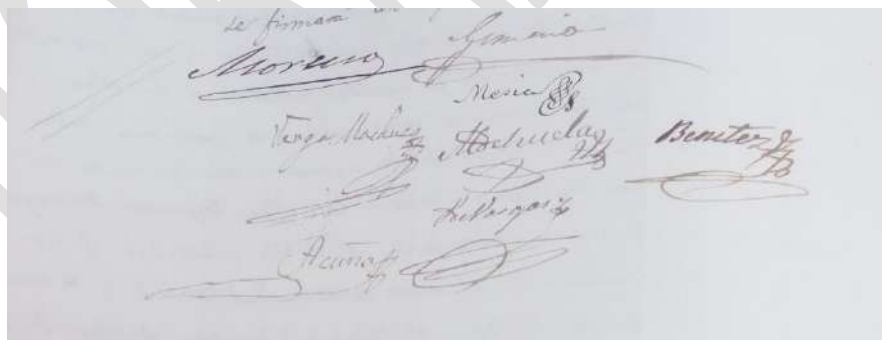 se firmara
Moreno Gimenio
Mesia
Vargas Machuca Mochuelo Benitez
De Vargas
Acuña